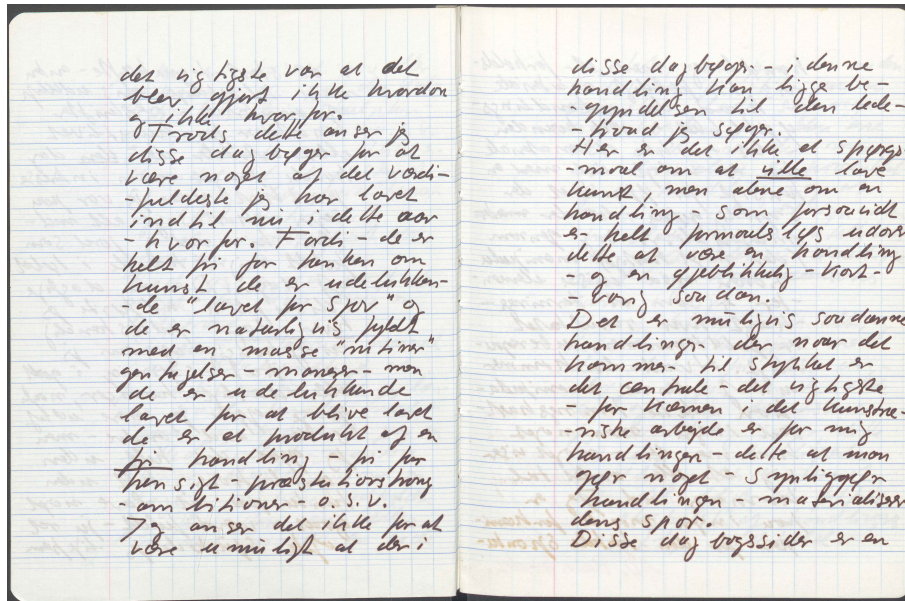 det vigtigste var at det
blev gjort ikke hvordan
og ikke hvorfor.
Trods dette anser jeg
disse dagbøger for at
være noget af det værdi-
-fuldeste jeg har lavet
indtil nu i dette aar
- hvorfor. Fordi - de er
helt fri for tanken om
kunst de er udelukken-
-de "lavet for sjov" og
de er naturligvis fyldt
med en masse "rutiner"
gentagelser - manerer - men
de er udelukkende
lavet for at blive lavet
de er et produkt af en
fri handling - fri for
hensigt - præstationstrang
- ambitioner - o.s.v.
Jeg anser det ikke for at
være umuligt at der i
disse dagbøger - i denne
handling kan ligge be-
-gyndelsen til den lede-
- hvad jeg søger.
Her er det ikke et spørgs-
-maal om at ville lave
kunst, men alene om en
handling - som forsaavidt
er helt formaalsløs udover
dette at være en handling
- og en øjeblikkelig - kort-
- varig saadan.
Det er muligvis saadanne
handlinger der naar det
kommer til stykket er
det centrale - det vigtigste
- for kærnen i det kunstne-
-riske arbejde er for mig
handlingen - dette at man
gør noget - synliggør
handlingen - materialiserer
dens spor.
Disse dagbogssider er en